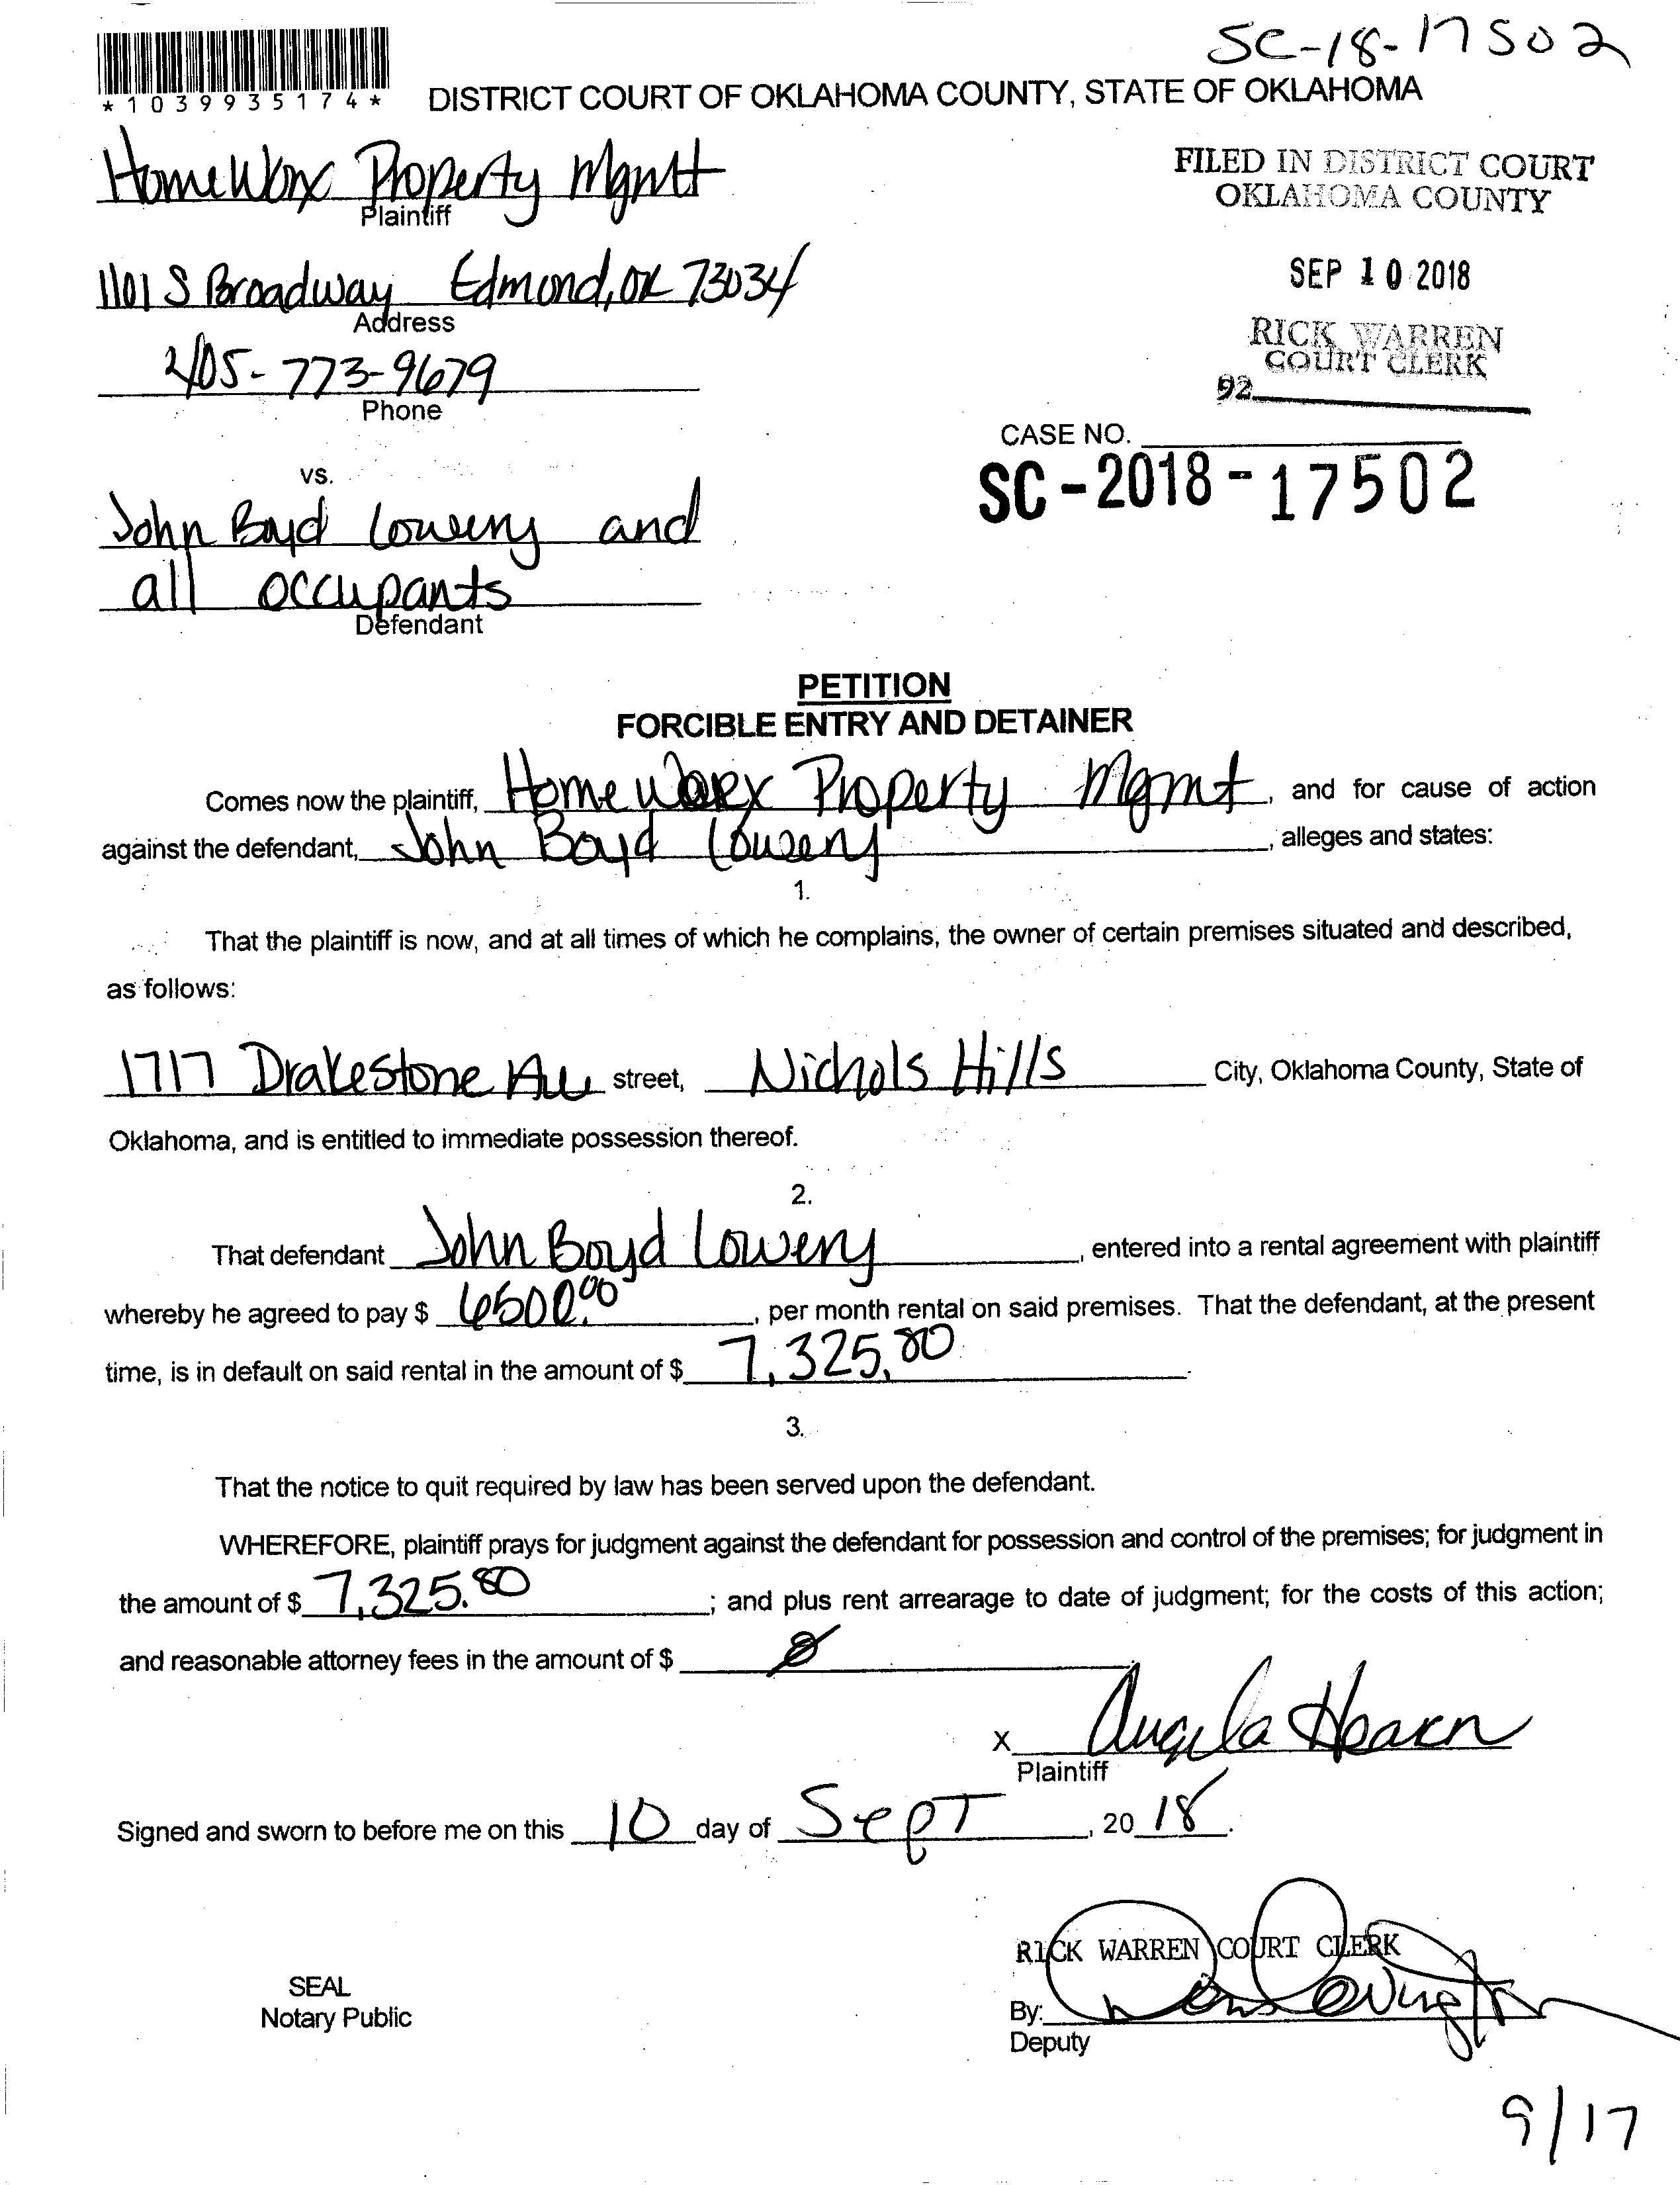 SC-18-17502
*1039935174*
DISTRICT COURT OF OKLAHOMA COUNTY, STATE OF OKLAHOMA
HomeWorx Property Mgmtt
Plaintiff
FILED IN DISTRICT COURT
OKLAHOMA COUNTY
1101 S Broadway Edmond, OK 73034
Address
SEP 10 2018
405-773-9679
Phone
RICK WARREN
COURT CLERK
92
CASE NO.
SC-2018-17502
vs.
John Boyd Lowery and
all occupants
Defendant
PETITION
FORCIBLE ENTRY AND DETAINER
Comes now the plaintiff, HomeWorx Property Mgmt, and for cause of action
against the defendant, John Boyd Lowery, alleges and states:
1.
That the plaintiff is now, and at all times of which he complains, the owner of certain premises situated and described,
as follows:
1717 Drakestone Ave street, Nichols Hills City, Oklahoma County, State of
Oklahoma, and is entitled to immediate possession thereof.
2.
That defendant John Boyd Lowery, entered into a rental agreement with plaintiff
whereby he agreed to pay $ 6500.00, per month rental on said premises. That the defendant, at the present
time, is in default on said rental in the amount of $ 7,325.80.
3.
That the notice to quit required by law has been served upon the defendant.
WHEREFORE, plaintiff prays for judgment against the defendant for possession and control of the premises; for judgment in
the amount of $ 7,325.80; and plus rent arrearage to date of judgment; for the costs of this action;
and reasonable attorney fees in the amount of $ 0
X Angela Hearn
Plaintiff
Signed and sworn to before me on this 10 day of Sept, 20 18.
RICK WARREN COURT CLERK
SEAL
Notary Public
By:
Deputy
9/17